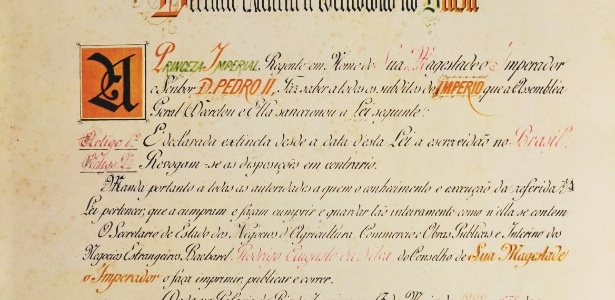 Declara extincta a escravidão no Brasil
A PRINCEZA IMPERIAL Regente em Nome de Sua Magestade o Imperador
o Senhor D. PEDRO II, Faz saber a todos os subditos do IMPERIO que a Assembléa
Geral Decretou e Ella sanccionou a Lei seguinte:
Artigo 1º É declarada extincta desde a data desta Lei a escravidão no Brasil.
Artigo 2º Revogam-se as disposições em contrario.
Manda portanto a todas as autoridades a quem o conhecimento e execução da referida
Lei pertencer, que a cumpram e façam cumprir e guardar tão inteiramente como n'ella se contem
O Secretario de Estado dos Negocios d'Agricultura, Commercio e Obras Publicas e Interino dos
Negocios Estrangeiros Bacharel Rodrigo Augusto da Silva do Conselho de Sua Magestade
o Imperador o faça imprimir, publicar e correr.
13 de